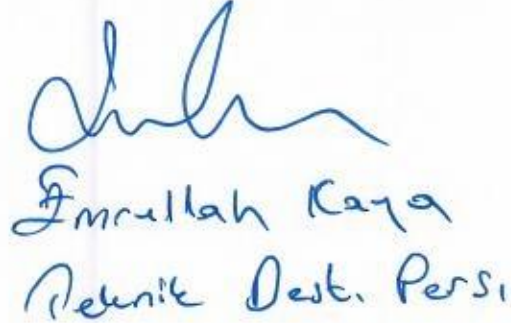 Emrullah Kaya
Teknik Dest. Pers.